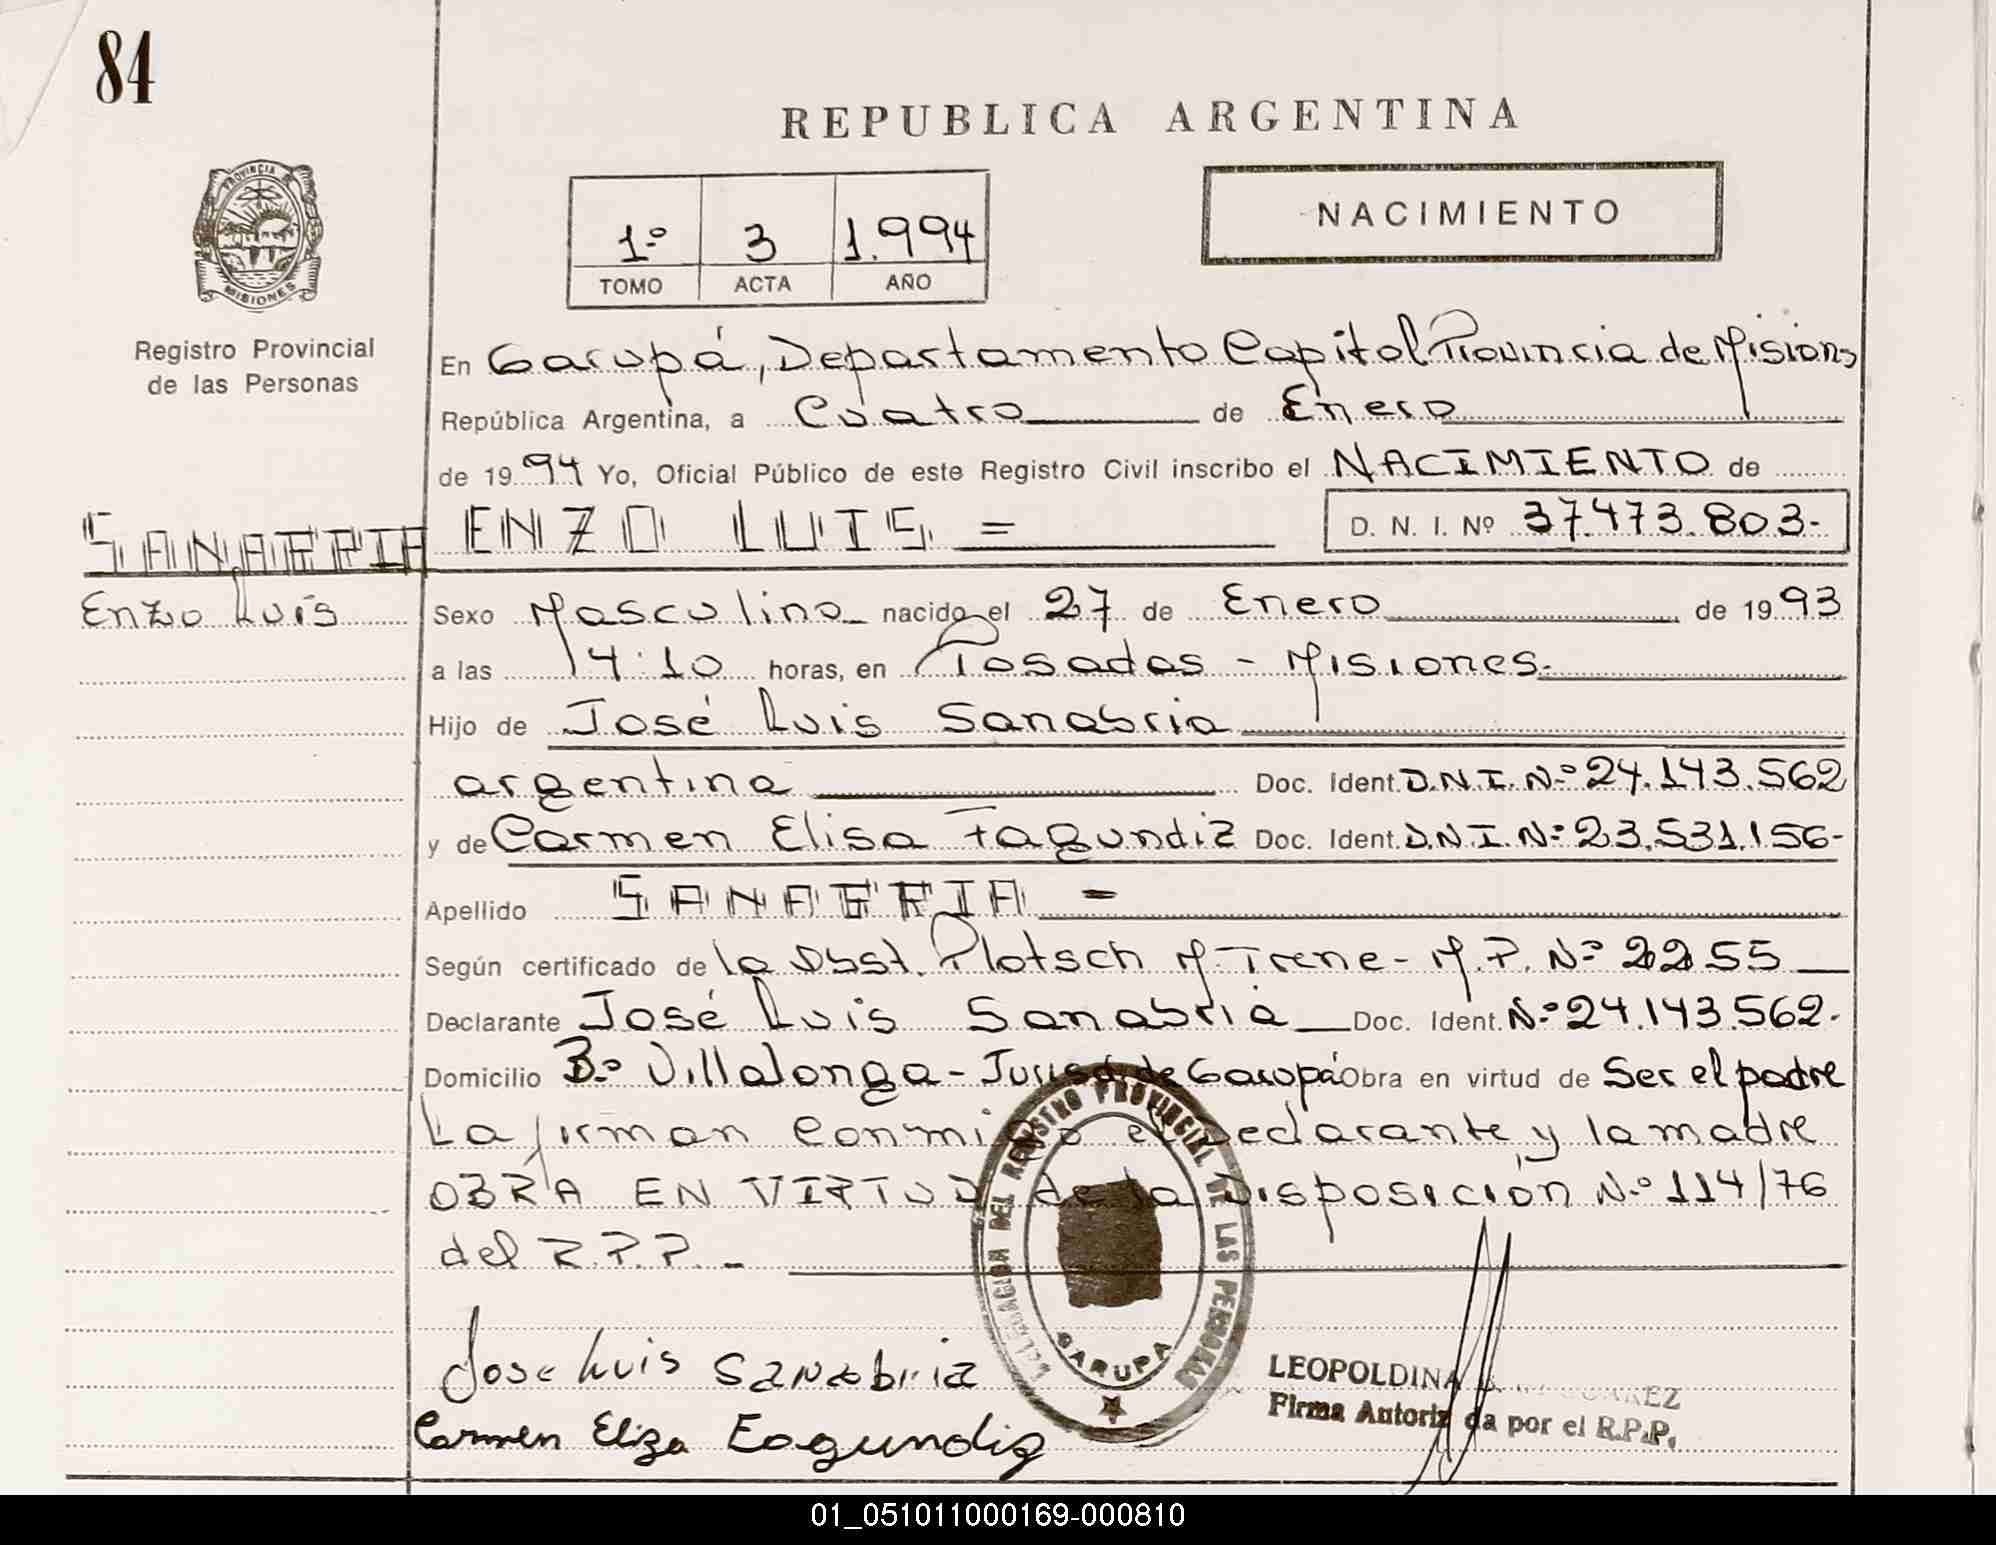 84
REPUBLICA ARGENTINA
PROVINCIA DE
MISIONES
Registro Provincial
de las Personas
1º 3 1.994
TOMO ACTA AÑO
NACIMIENTO
En Garupá, Departamento Capital Provincia de Misiones
República Argentina, a Cuatro de Enero
de 1994 Yo, Oficial Público de este Registro Civil inscribo el NACIMIENTO de
SANABRIA
Enzo Luis
ENZO LUIS =
D. N. I. Nº 37.473.803-
Sexo Masculino nacido el 27 de Enero de 1993
a las 14:10 horas, en Posadas - Misiones.
Hijo de José Luis Sanabria
argentina Doc. Ident. D.N.I. Nº 24.143.562
y de Carmen Elisa Fagundiz Doc. Ident. D.N.I. Nº 23.531.156-
Apellido SANABRIA =
Según certificado de la Obst. Plotsch M. Irene - M.P. Nº 2255
Declarante José Luis Sanabria Doc. Ident. Nº 24.143.562.
Domicilio Bº Villalonga - Jurisd. de Garupá Obra en virtud de Ser el padre
La firman conmigo el declarante y la madre
OBRA EN VIRTUD de la Disposición Nº 114/76
del R.P.P. -
DELEGACION DEL REGISTRO PROVINCIAL DE LAS PERSONAS
GARUPA
Jose Luis Sanabria
Carmen Eliza Fagundiz
LEOPOLDINA
Firma Autorizada por el R.P.P.
01_051011000169-000810